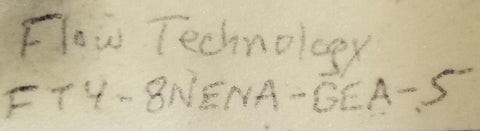 Flow Technology
FT4-8NENA-GEA-5